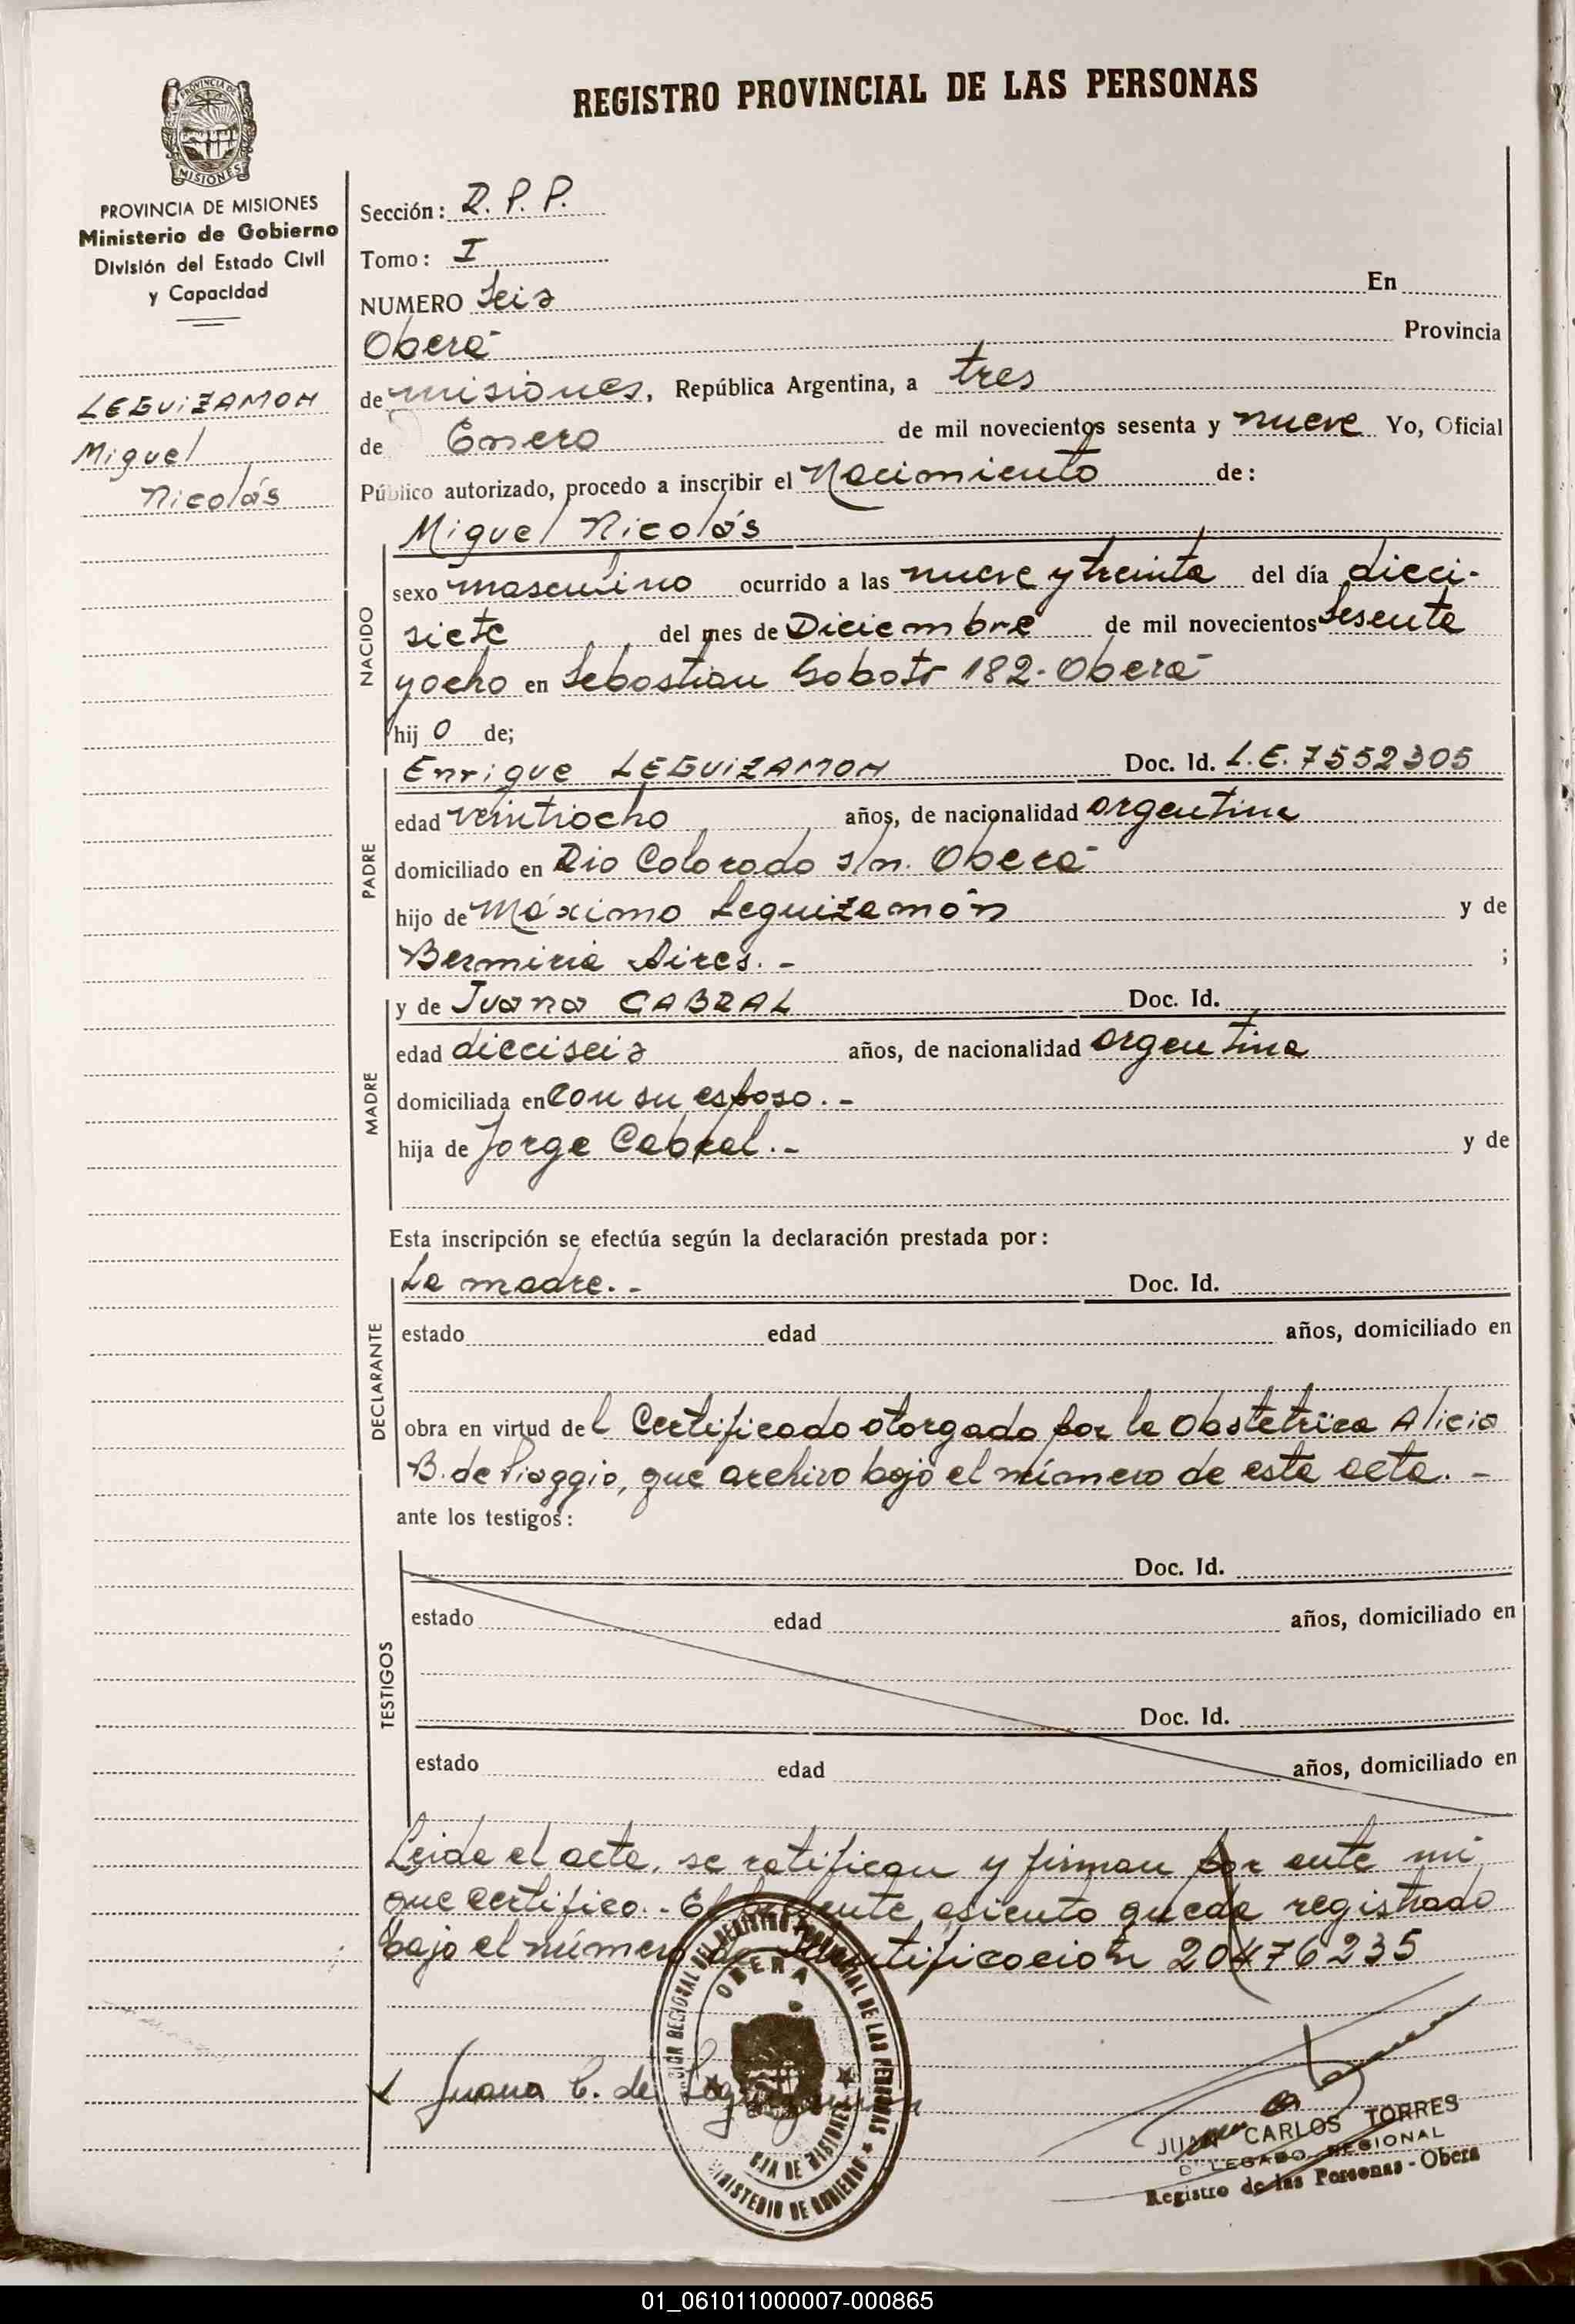 REGISTRO PROVINCIAL DE LAS PERSONAS
PROVINCIA DE
MISIONES
PROVINCIA DE MISIONES
Ministerio de Gobierno
División del Estado Civil
y Capacidad
LEGUIZAMON
Miguel
Nicolás
Sección: R. P. P.
Tomo: I
NUMERO Seis En
Oberá Provincia
de misiones, República Argentina, a tres
de Enero de mil novecientos sesenta y nueve Yo, Oficial
Público autorizado, procedo a inscribir el Nacimiento de:
Miguel Nicolás
NACIDO
sexo masculino ocurrido a las nueve y treinta del día dieci-
siete del mes de Diciembre de mil novecientos Sesenta
y ocho en Sebastian Gaboto 182-Oberá
hij o de;
PADRE
Enrique LEGUIZAMON Doc. Id. L.E. 7552305
edad veintiocho años, de nacionalidad argentina
domiciliado en Rio Colorado s/n. Oberá
hijo de Máximo Leguizamón y de
Aires. - ;
MADRE
y de Juana CABRAL Doc. Id.
edad dieciseis años, de nacionalidad argentina
domiciliada en con su esposo. -
hija de Jorge Cabral. - y de
Esta inscripción se efectúa según la declaración prestada por:
DECLARANTE
La madre. - Doc. Id.
estado edad años, domiciliado en
obra en virtud del Certificado otorgado por la Obstetrica Alicia
B. de Piaggio, que archivo bajo el número de esta acta. -
ante los testigos:
TESTIGOS
Doc. Id.
estado edad años, domiciliado en
Doc. Id.
estado edad años, domiciliado en
Leida el acta, se ratifican y firman por ante mi
que certifico. - El presente asiento queda registrado
bajo el número de Identificación 20476235
OBERA
MINISTERIO DE GOBIERNO
Juana C. de Leguizamon
JUAN CARLOS TORRES
DELEGADO REGIONAL
Registro de las Personas - Oberá
01_061011000007-000865